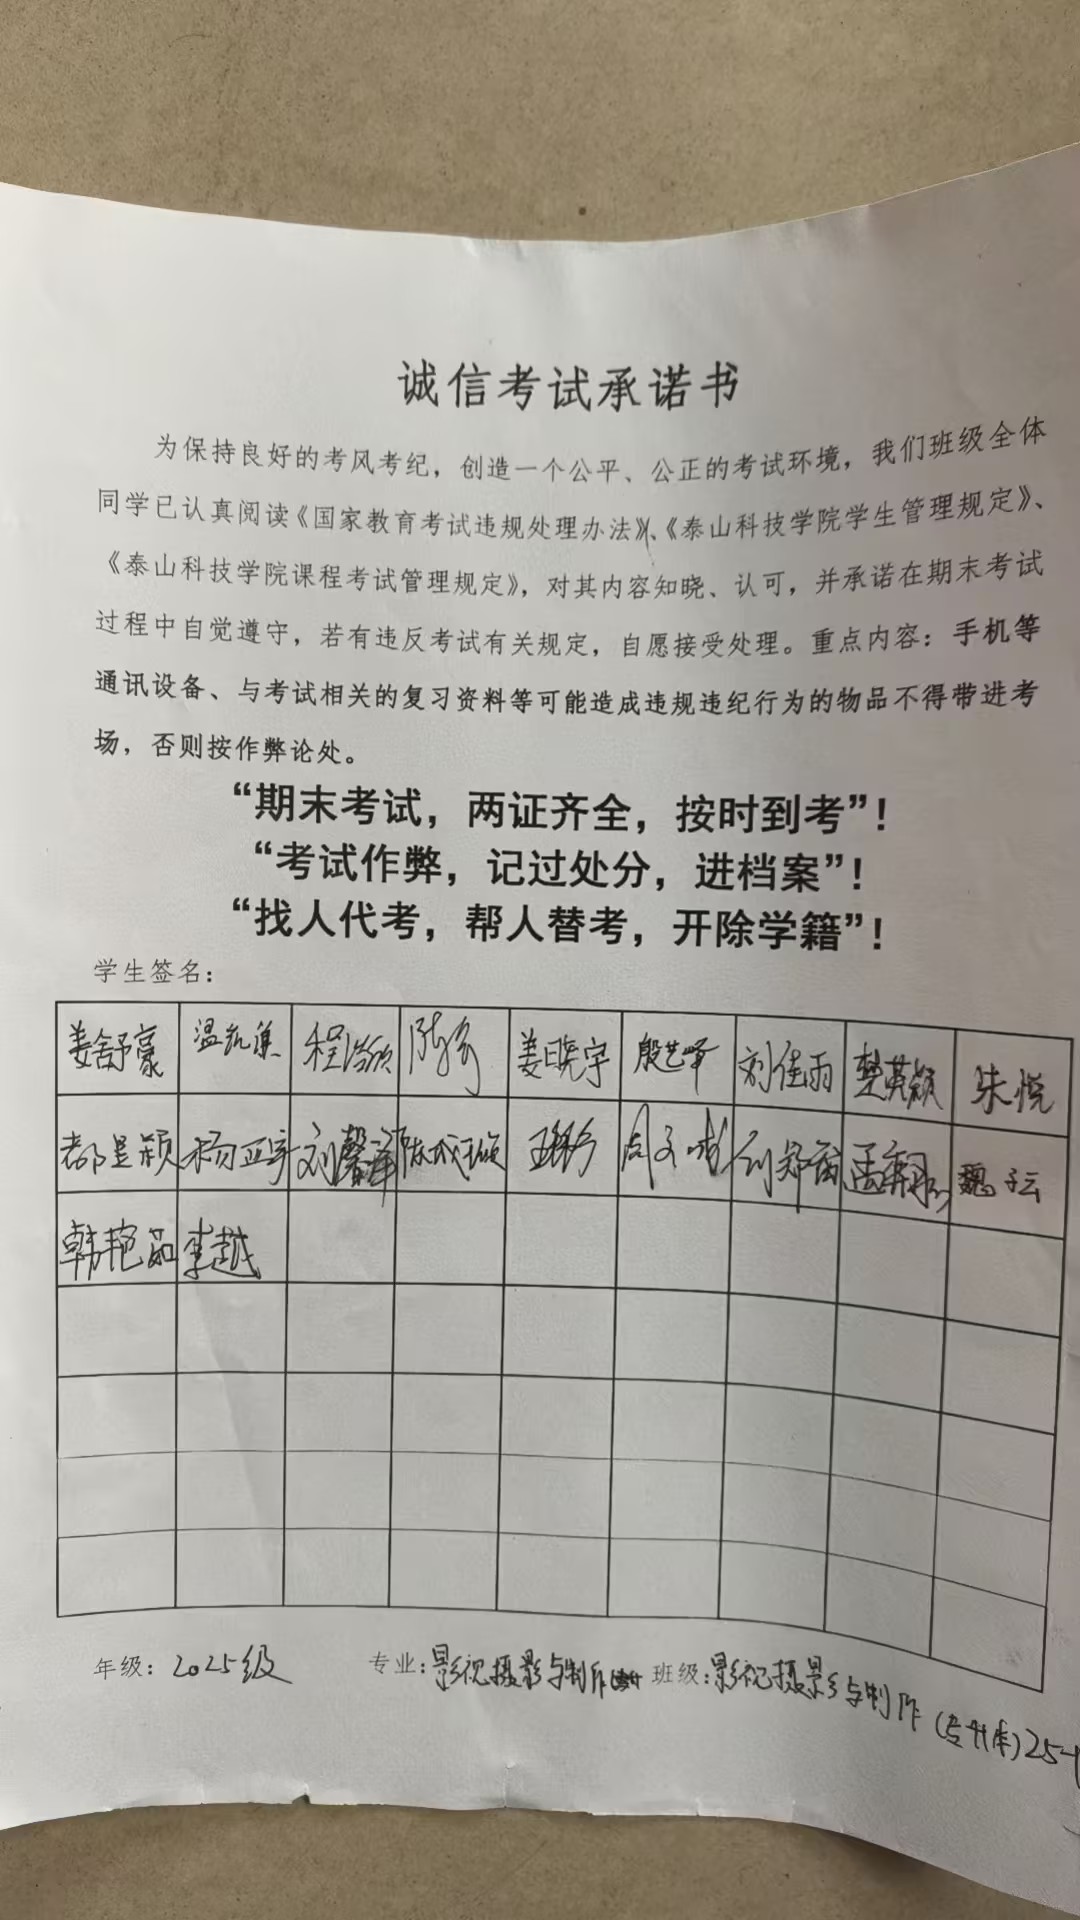 诚信考试承诺书
为保持良好的考风考纪，创造一个公平、公正的考试环境，我们班级全体
同学已认真阅读《国家教育考试违规处理办法》、《泰山科技学院学生管理规定》、
《泰山科技学院课程考试管理规定》，对其内容知晓、认可，并承诺在期末考试
过程中自觉遵守，若有违反考试有关规定，自愿接受处理。重点内容：手机等
通讯设备、与考试相关的复习资料等可能造成违规违纪行为的物品不得带进考
场，否则按作弊论处。
“期末考试，两证齐全，按时到考”！
“考试作弊，记过处分，进档案”！
“找人代考，帮人替考，开除学籍”！
学生签名：
姜舒豪 温凯 程浩 陈 姜晓宇 殷艺 刘佳雨 樊英颖 朱悦
都昱颖 杨亚宇 刘馨泽 陈 王 周文 刘郑 孟 魏坛
韩艳茹 李越
年级：2025级 专业：影视摄影与制作 班级：影视摄影与制作（专升本）25-1